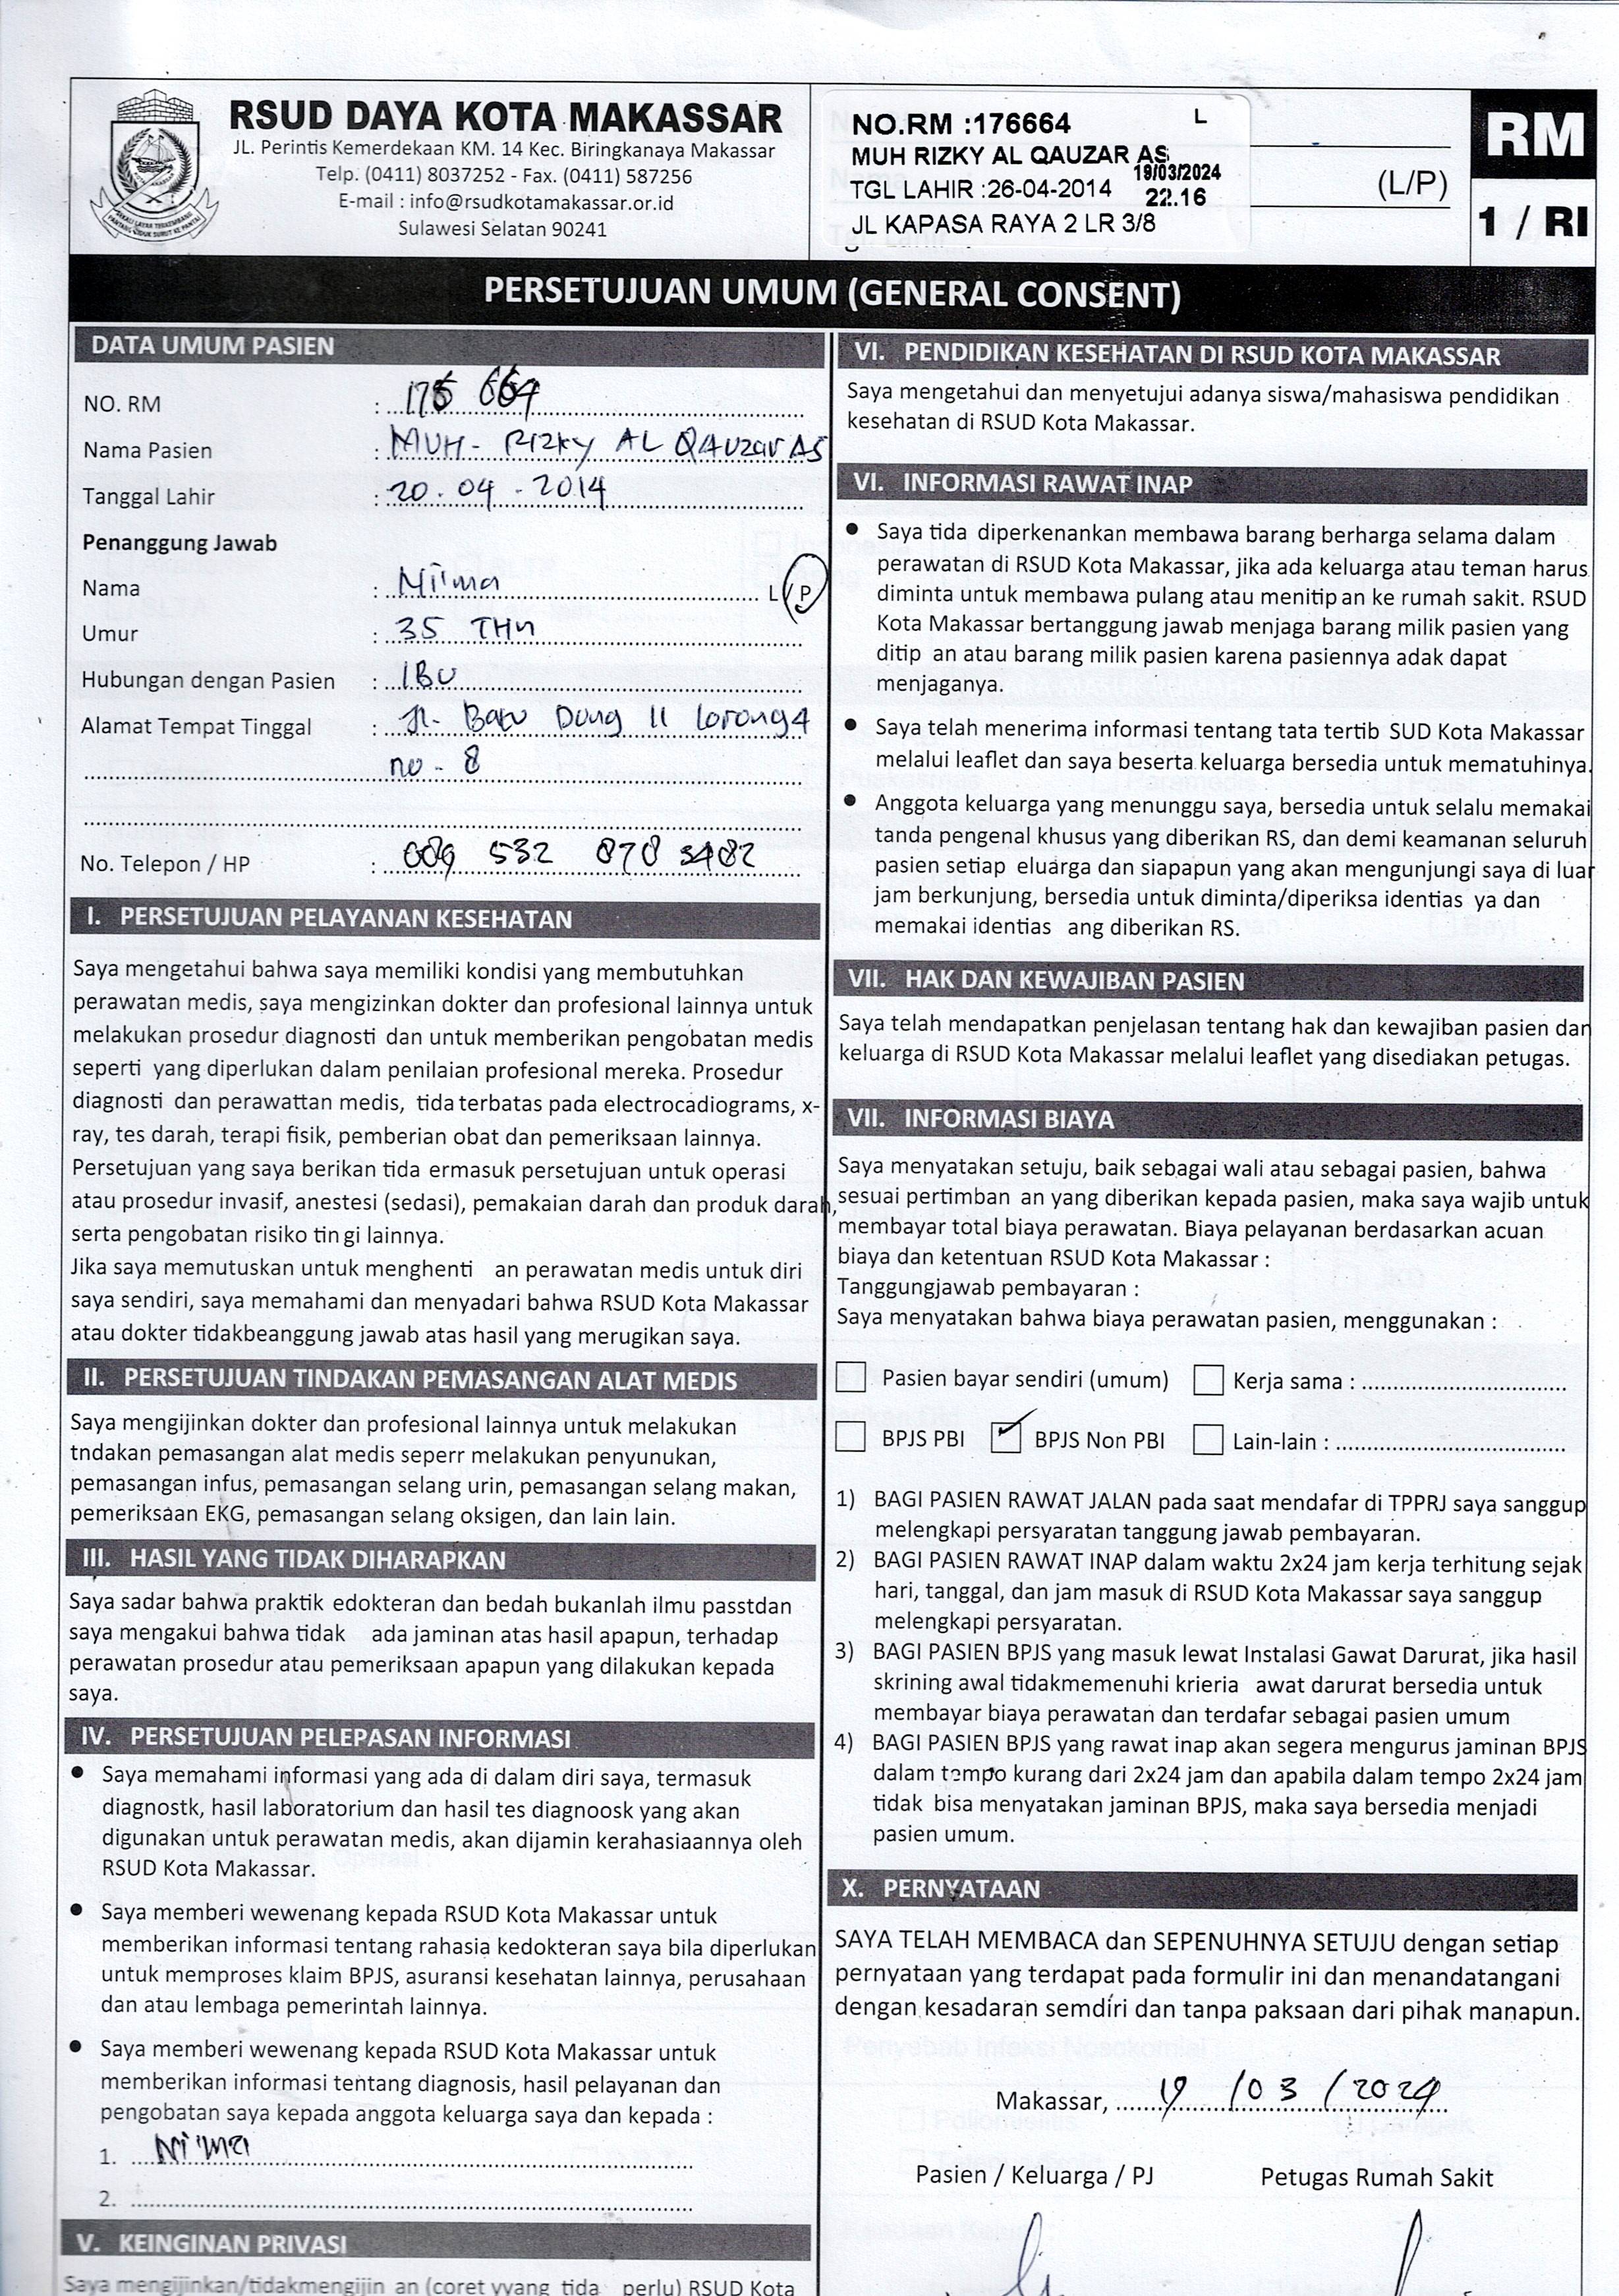 RSUD DAYA KOTA MAKASSAR
JL. Perintis Kemerdekaan KM. 14 Kec. Biringkanaya Makassar
Telp. (0411) 8037252 - Fax. (0411) 587256
E-mail : info@rsudkotamakassar.or.id
Sulawesi Selatan 90241
NO.RM :176664 L
MUH RIZKY AL QAUZAR AS
19/03/2024
TGL LAHIR :26-04-2014 22.16
JL KAPASA RAYA 2 LR 3/8
(L/P)
RM
1 / RI
PERSETUJUAN UMUM (GENERAL CONSENT)
DATA UMUM PASIEN
NO. RM : 176 664
Nama Pasien : MUH - RIZKY AL QAUZAR AS
Tanggal Lahir : 20 . 04 - 2014
Penanggung Jawab
Nama : L/P
Umur : 35 THN
Hubungan dengan Pasien : IBU
Alamat Tempat Tinggal : Jl. Dong II lorong 4
no - 8
No. Telepon / HP : 532 878 3482
I. PERSETUJUAN PELAYANAN KESEHATAN
Saya mengetahui bahwa saya memiliki kondisi yang membutuhkan
perawatan medis, saya mengizinkan dokter dan profesional lainnya untuk
melakukan prosedur diagnosti dan untuk memberikan pengobatan medis
seperti yang diperlukan dalam penilaian profesional mereka. Prosedur
diagnosti dan perawattan medis, tida terbatas pada electrocadiograms, x-
ray, tes darah, terapi fisik, pemberian obat dan pemeriksaan lainnya.
Persetujuan yang saya berikan tida ermasuk persetujuan untuk operasi
atau prosedur invasif, anestesi (sedasi), pemakaian darah dan produk darah,
serta pengobatan risiko tin gi lainnya.
Jika saya memutuskan untuk menghenti an perawatan medis untuk diri
saya sendiri, saya memahami dan menyadari bahwa RSUD Kota Makassar
atau dokter tidakbeanggung jawab atas hasil yang merugikan saya.
II. PERSETUJUAN TINDAKAN PEMASANGAN ALAT MEDIS
Saya mengijinkan dokter dan profesional lainnya untuk melakukan
tndakan pemasangan alat medis seperr melakukan penyunukan,
pemasangan infus, pemasangan selang urin, pemasangan selang makan,
pemeriksaan EKG, pemasangan selang oksigen, dan lain lain.
III. HASIL YANG TIDAK DIHARAPKAN
Saya sadar bahwa praktik edokteran dan bedah bukanlah ilmu passtdan
saya mengakui bahwa tidak ada jaminan atas hasil apapun, terhadap
perawatan prosedur atau pemeriksaan apapun yang dilakukan kepada
saya.
IV. PERSETUJUAN PELEPASAN INFORMASI
● Saya memahami informasi yang ada di dalam diri saya, termasuk
diagnostk, hasil laboratorium dan hasil tes diagnoosk yang akan
digunakan untuk perawatan medis, akan dijamin kerahasiaannya oleh
RSUD Kota Makassar.
● Saya memberi wewenang kepada RSUD Kota Makassar untuk
memberikan informasi tentang rahasia kedokteran saya bila diperlukan
untuk memproses klaim BPJS, asuransi kesehatan lainnya, perusahaan
dan atau lembaga pemerintah lainnya.
● Saya memberi wewenang kepada RSUD Kota Makassar untuk
memberikan informasi tentang diagnosis, hasil pelayanan dan
pengobatan saya kepada anggota keluarga saya dan kepada :
1. Ni'ma
2.
V. KEINGINAN PRIVASI
Saya mengijinkan/tidakmengijin an (coret yyang tida perlu) RSUD Kota
VI. PENDIDIKAN KESEHATAN DI RSUD KOTA MAKASSAR
Saya mengetahui dan menyetujui adanya siswa/mahasiswa pendidikan
kesehatan di RSUD Kota Makassar.
VI. INFORMASI RAWAT INAP
● Saya tida diperkenankan membawa barang berharga selama dalam
perawatan di RSUD Kota Makassar, jika ada keluarga atau teman harus
diminta untuk membawa pulang atau menitip an ke rumah sakit. RSUD
Kota Makassar bertanggung jawab menjaga barang milik pasien yang
ditip an atau barang milik pasien karena pasiennya adak dapat
menjaganya.
● Saya telah menerima informasi tentang tata tertib SUD Kota Makassar
melalui leaflet dan saya beserta keluarga bersedia untuk mematuhinya.
● Anggota keluarga yang menunggu saya, bersedia untuk selalu memakai
tanda pengenal khusus yang diberikan RS, dan demi keamanan seluruh
pasien setiap eluarga dan siapapun yang akan mengunjungi saya di luar
jam berkunjung, bersedia untuk diminta/diperiksa identias ya dan
memakai identias ang diberikan RS.
VII. HAK DAN KEWAJIBAN PASIEN
Saya telah mendapatkan penjelasan tentang hak dan kewajiban pasien dan
keluarga di RSUD Kota Makassar melalui leaflet yang disediakan petugas.
VII. INFORMASI BIAYA
Saya menyatakan setuju, baik sebagai wali atau sebagai pasien, bahwa
sesuai pertimban an yang diberikan kepada pasien, maka saya wajib untuk
membayar total biaya perawatan. Biaya pelayanan berdasarkan acuan
biaya dan ketentuan RSUD Kota Makassar :
Tanggungjawab pembayaran :
Saya menyatakan bahwa biaya perawatan pasien, menggunakan :
Pasien bayar sendiri (umum) Kerja sama :
BPJS PBI ✓ BPJS Non PBI Lain-lain :
1) BAGI PASIEN RAWAT JALAN pada saat mendafar di TPPRJ saya sanggup
melengkapi persyaratan tanggung jawab pembayaran.
2) BAGI PASIEN RAWAT INAP dalam waktu 2x24 jam kerja terhitung sejak
hari, tanggal, dan jam masuk di RSUD Kota Makassar saya sanggup
melengkapi persyaratan.
3) BAGI PASIEN BPJS yang masuk lewat Instalasi Gawat Darurat, jika hasil
skrining awal tidakmemenuhi krieria awat darurat bersedia untuk
membayar biaya perawatan dan terdafar sebagai pasien umum
4) BAGI PASIEN BPJS yang rawat inap akan segera mengurus jaminan BPJS
dalam tempo kurang dari 2x24 jam dan apabila dalam tempo 2x24 jam
tidak bisa menyatakan jaminan BPJS, maka saya bersedia menjadi
pasien umum.
X. PERNYATAAN
SAYA TELAH MEMBACA dan SEPENUHNYA SETUJU dengan setiap
pernyataan yang terdapat pada formulir ini dan menandatangani
dengan kesadaran semdiri dan tanpa paksaan dari pihak manapun.
Makassar, 19 / 03 / 2024
Pasien / Keluarga / PJ Petugas Rumah Sakit